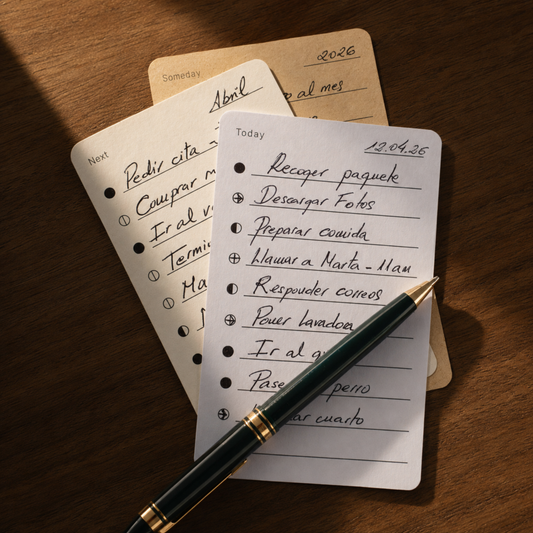 Someday
2026
al mes
Next
Abril
Pedir cita
Comprar
Ir al
Today
12.04.26
Recoger paquete
Descargar Fotos
Preparar comida
Llamar a Marta - 11am
Responder correos
Poner lavadora
Ir al
perro
cuarto